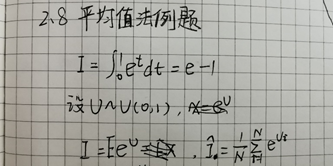 2.8 平均值法例题
I = ∫₀¹ eᵗ dt = e - 1
设 U ~ U(0,1),
I = Ee^U , Î = 1/N ∑_{i=1}^N e^{Ui}